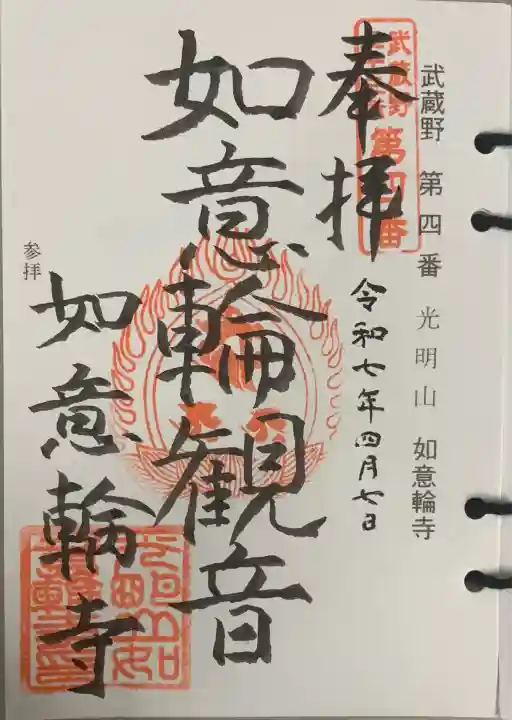 武蔵野 第四番 光明山 如意輪寺
武蔵野
第四番
奉拝
令和七年四月七日
如意輪観音
如意輪寺
参拝